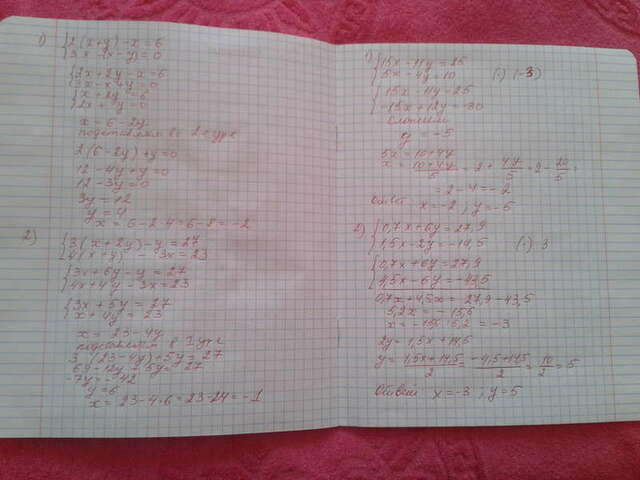 1) {2(x+y)-x=6
{3x-(x-y)=0
{2x+2y-x=6
{3x-x+y=0
{x+2y=6
{2x+y=0
x=6-2y
подставляем во 2 ур-е
2(6-2y)+y=0
12-4y+y=0
12-3y=0
3y=12
y=4
x=6-2·4=6-8=-2
2) {3(x+2y)-y=27
{4(x+y)-3x=23
{3x+6y-y=27
{4x+4y-3x=23
{3x+5y=27
{x+4y=23
x=23-4y
подставляем в 1 ур-е
3(23-4y)+5y=27
69-12y+5y=27
-7y=-42
y=6
x=23-4·6=23-24=-1
1) {15x-11y=25
{5x-4y=10 (·) (-3)
{15x-11y=25
{-15x+12y=-30
сложим
y=-5
5x=10+4y
x=10+4y/5=2+4y/5=2-20/5=
=2-4=-2
Ответ x=-2; y=-5
2) {0,7x+6y=27,9
{1,5x-2y=-14,5 (·) 3
{0,7x+6y=27,9
{4,5x-6y=-43,5
0,7x+4,5x=27,9-43,5
5,2x=-15,6
x=-15,6:5,2=-3
2y=1,5x+14,5
y=1,5x+14,5/2=-4,5+14,5/2=10/2=5
Ответ x=-3; y=5